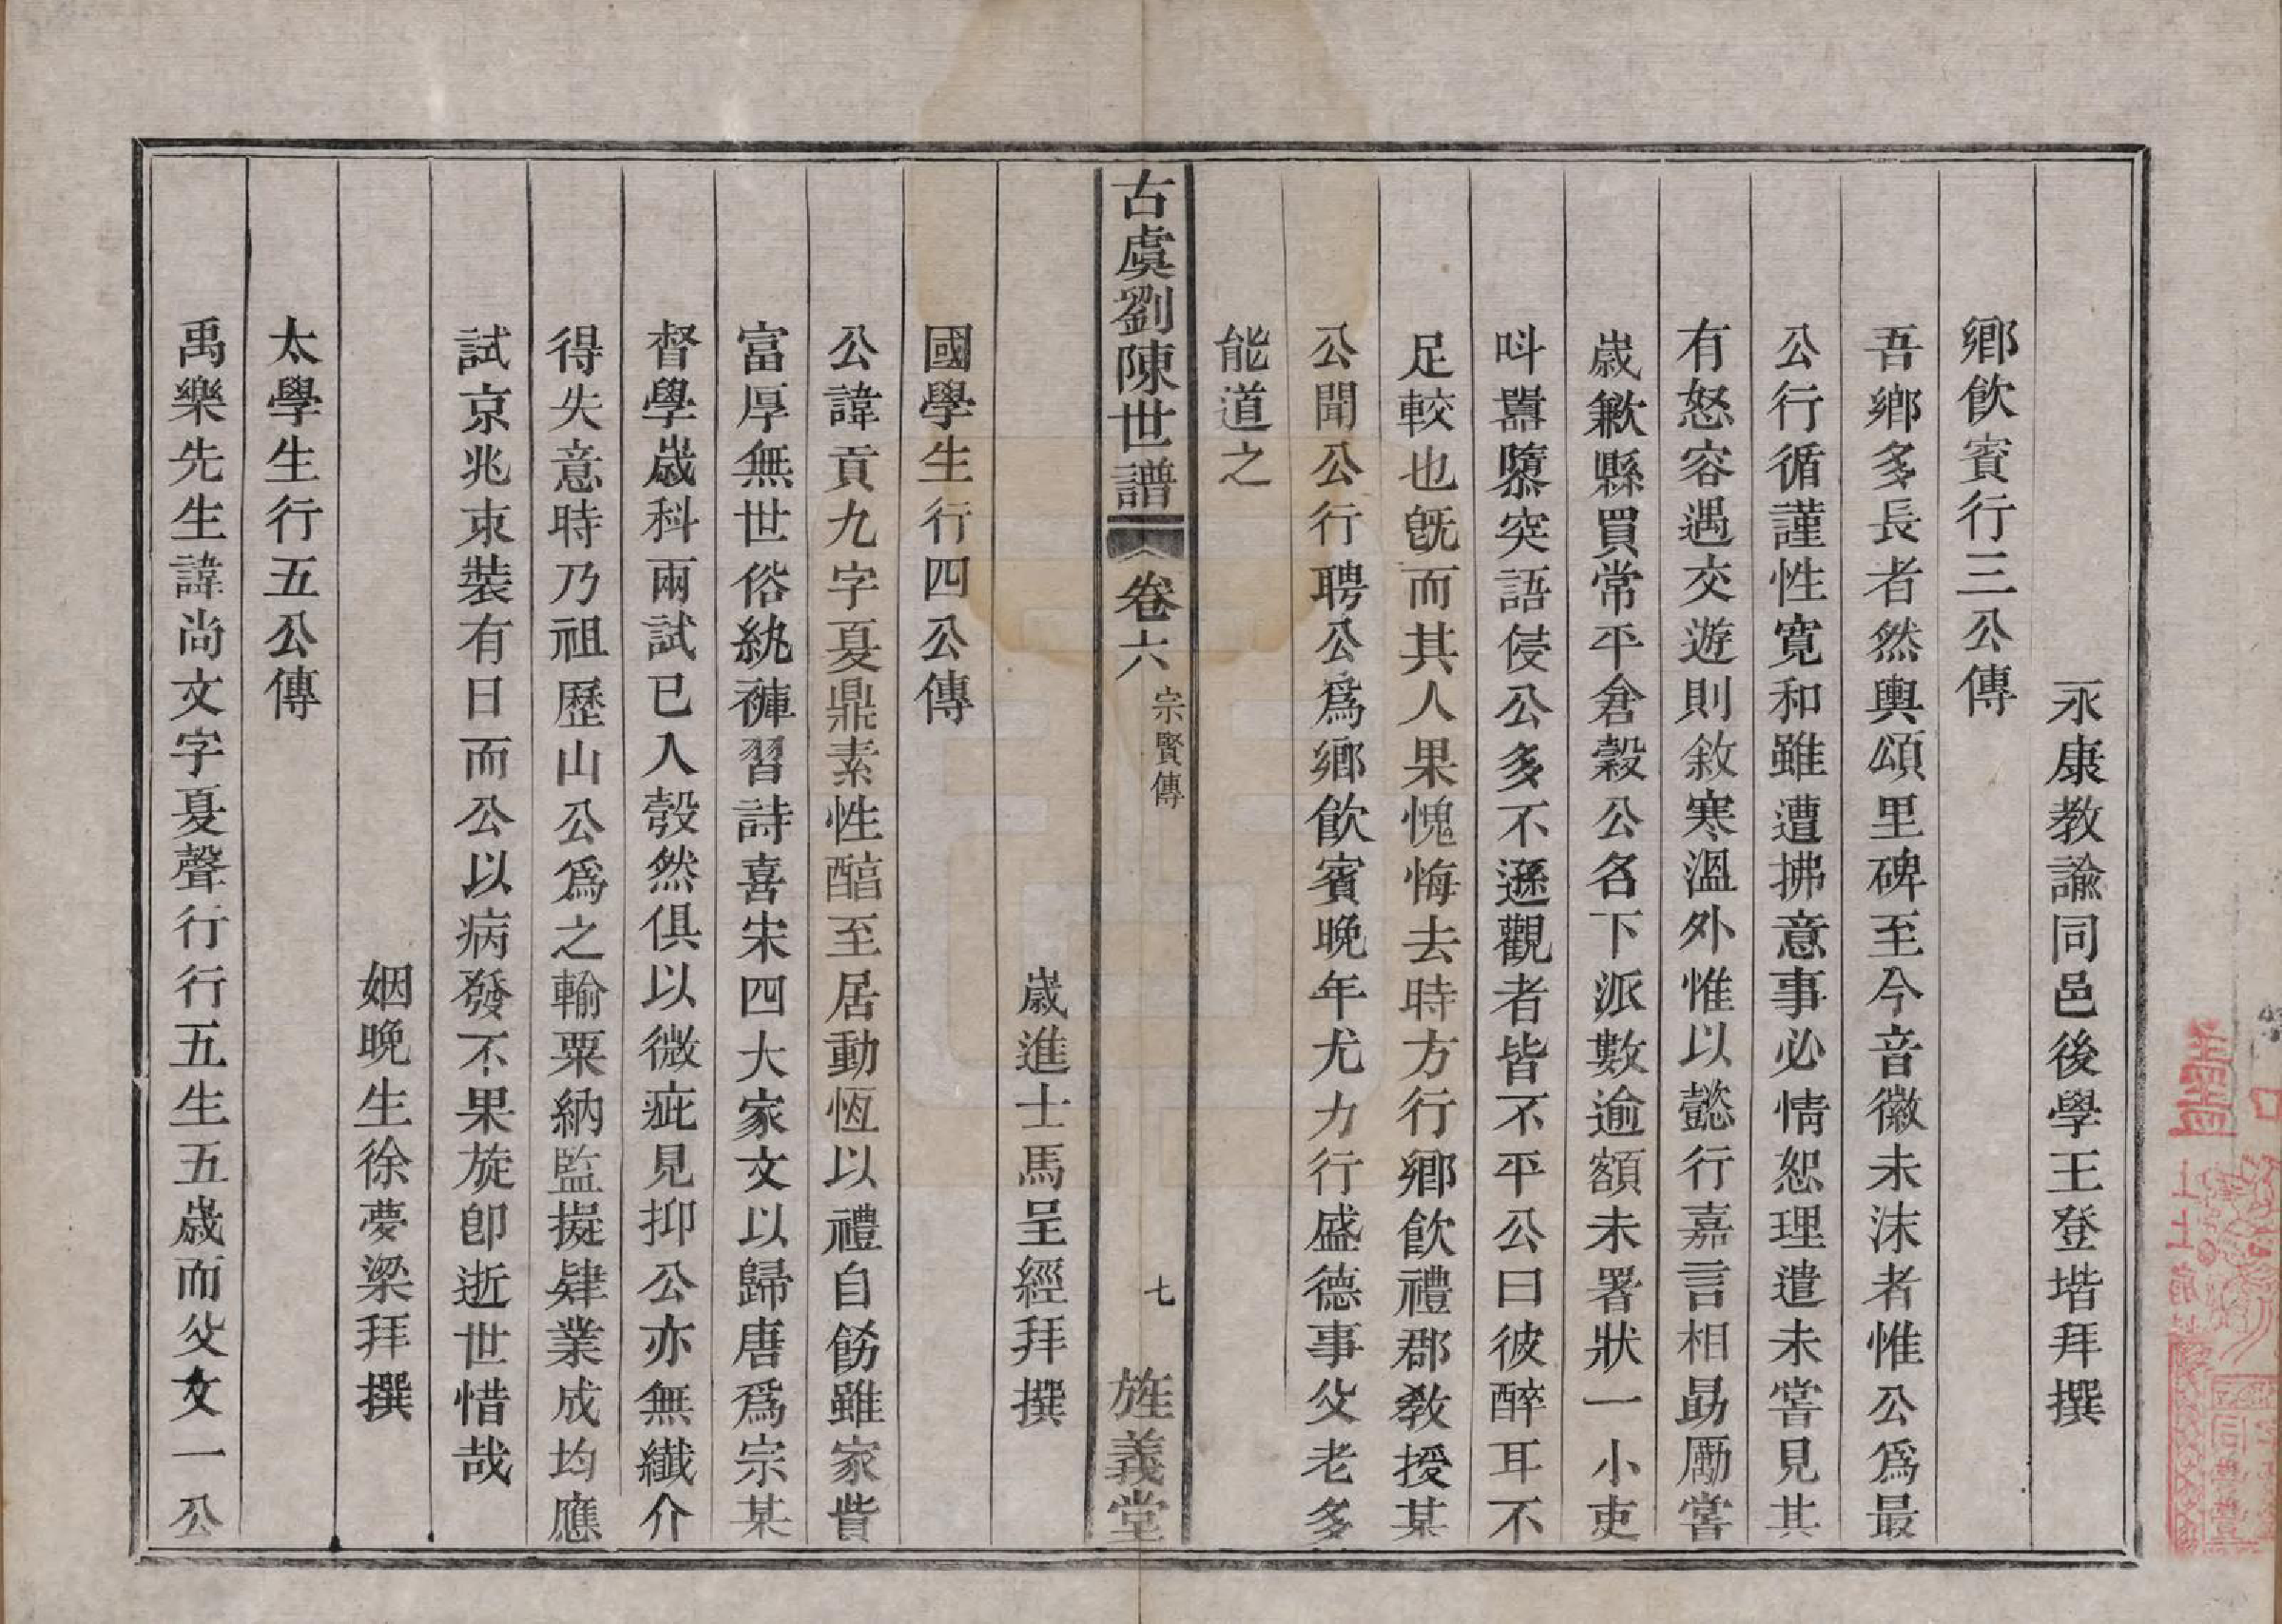 永康教諭同邑後學王登堦拜撰
鄉飲賓行三公傳
吾鄉多長者然輿頌里碑至今音徽未沫者惟公爲最
公行循謹性寬和雖遭拂意事必情恕理遣未嘗見其
有怒容遇交遊則敘寒溫外惟以懿行嘉言相勗勵嘗
歲歉縣買常平倉穀公名下派數逾額未署狀一小吏
呌嚚隳突語侵公多不遜觀者皆不平公曰彼醉耳不
足較也旣而其人果愧悔去時方行鄉飲禮郡教授某
公聞公行聘公爲鄉飲賓晚年尤力行盛德事父老多
能道之
古虞劉陳世譜
卷六
宗賢傳
七
旌義堂
歲進士馬呈經拜撰
國學生行四公傳
公諱貢九字夏鼎素性醕至居動恆以禮自飭雖家貲
富厚無世俗紈褲習詩喜宋四大家文以歸唐爲宗某
督學歲科兩試已入彀然俱以微疵見抑公亦無纖介
得失意時乃祖歷山公爲之輸粟納監擬肄業成均應
試京兆束裝有日而公以病發不果旋卽逝世惜哉
姻晚生徐夢梁拜撰
太學生行五公傳
禹樂先生諱尚文字夏聲行行五生五歲而父文一公